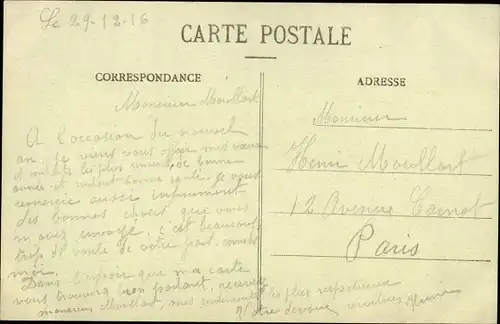 Le 29-12-16
CARTE POSTALE
CORRESPONDANCE
ADRESSE
Monsieur Moullart
A l'occasion du nouvel
an, je viens vous offrir mes vœux
et souhaits les plus sincères, de bonne
année et surtout bonne santé. Je vous
remercie aussi infiniment
des bonnes choses que vous
m'avez envoyé, c'est beaucoup
trop de bonté de votre part, envers
moi.
Dans l'espoir que ma carte
vous trouvera bien portant, recevez
monsieur Moullart, mes sentiments
les plus respectueux
votre dévoué
Monsieur
Henri Moullart
12 Avenue Carnot
Paris